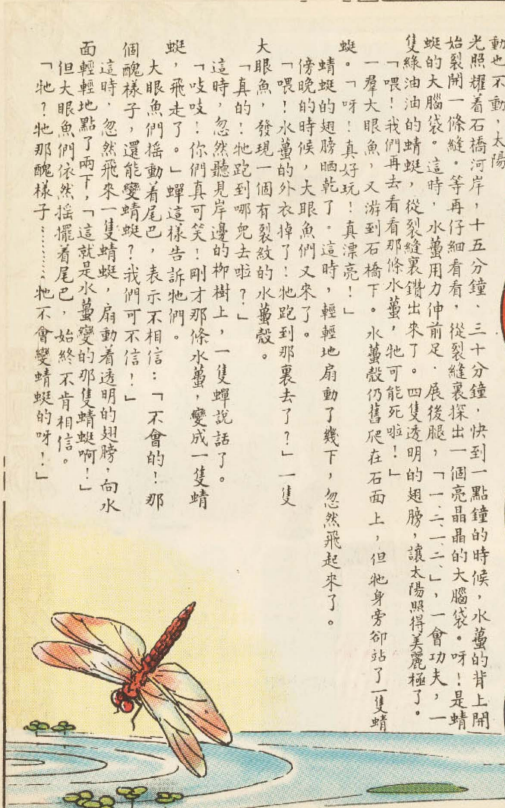 動也不動，太陽
光照耀着石橋河岸，十五分鐘，三十分鐘，快到一點鐘的時候，水蠆的背上開
始裂開一條縫。等再仔細看看，從裂縫裏探出一個亮晶晶的大腦袋。呀！是蜻
蜓的大腦袋。這時，水蠆用力伸前足，展後腿，「一二一二」，一會功夫，一
隻綠油油的蜻蜓，從裂縫裏鑽出來了。四隻透明的翅膀，讓太陽照得美麗極了。
「喂！我們再去看看那條水蠆，牠可能死啦！」
一羣大眼魚，又游到石橋下。水蠆殼仍舊爬在石面上，但牠身旁卻站了一隻蜻
蜓。「呀！真好玩！真漂亮！」
蜻蜓的翅膀晒乾了。這時，輕輕地扇動了幾下，忽然飛起來了。
傍晚的時候，大眼魚們又來了。
「喂！水蠆的外衣掉了！牠跑到那裏去了？」一隻
大眼魚，發現一個有裂紋的水蠆殼。
「真的！牠跑到哪兒去啦？」
這時，忽然聽見岸邊的柳樹上，一隻蟬說話了。
「吱吱！你們真可笑！剛才那條水蠆，變成一隻蜻
蜓，飛走了。」蟬這樣告訴牠們。
大眼魚們搖動着尾巴，表示不相信：「不會的！那
個醜樣子，還能變蜻蜓？我們可不信！」
這時，忽然飛來一隻蜻蜓，扇動着透明的翅膀，向水
面輕輕地點了兩下，「這就是水蠆變的那隻蜻蜓啊！」
但大眼魚們依然搖擺着尾巴，始終不肯相信。
「牠？牠那醜樣子………牠不會變蜻蜓的呀！」